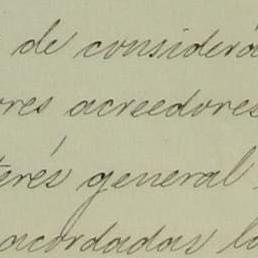 de considerá
ores acreedores
terés general
acordadas la